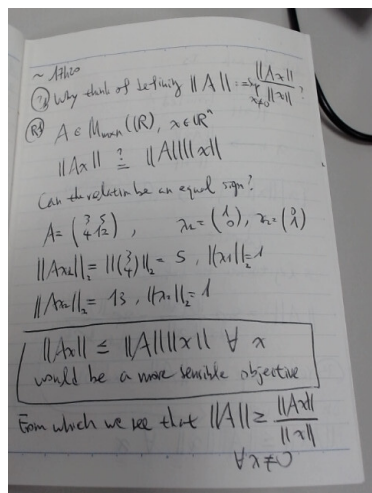 ~ 17h20
?) Why think of defining ||A|| := sup x≠0 ||Ax|| / ||x|| ?
R1) A ∈ Mmxn(ℝ), x ∈ ℝⁿ
||Ax|| ?= ||A|| ||x||
Can the relation be an equal sign?
A = (3 5 / 4 12), x₁ = (1 / 0), x₂ = (0 / 1)
||Ax₁||₂ = ||(3 / 4)||₂ = 5, ||x₁||₂ = 1
||Ax₂||₂ = 13, ||x₂||₂ = 1
||Ax|| ≤ ||A|| ||x|| ∀ x
would be a more sensible objective
From which we see that ||A|| ≥ ||Ax|| / ||x||
∀ x ≠ 0